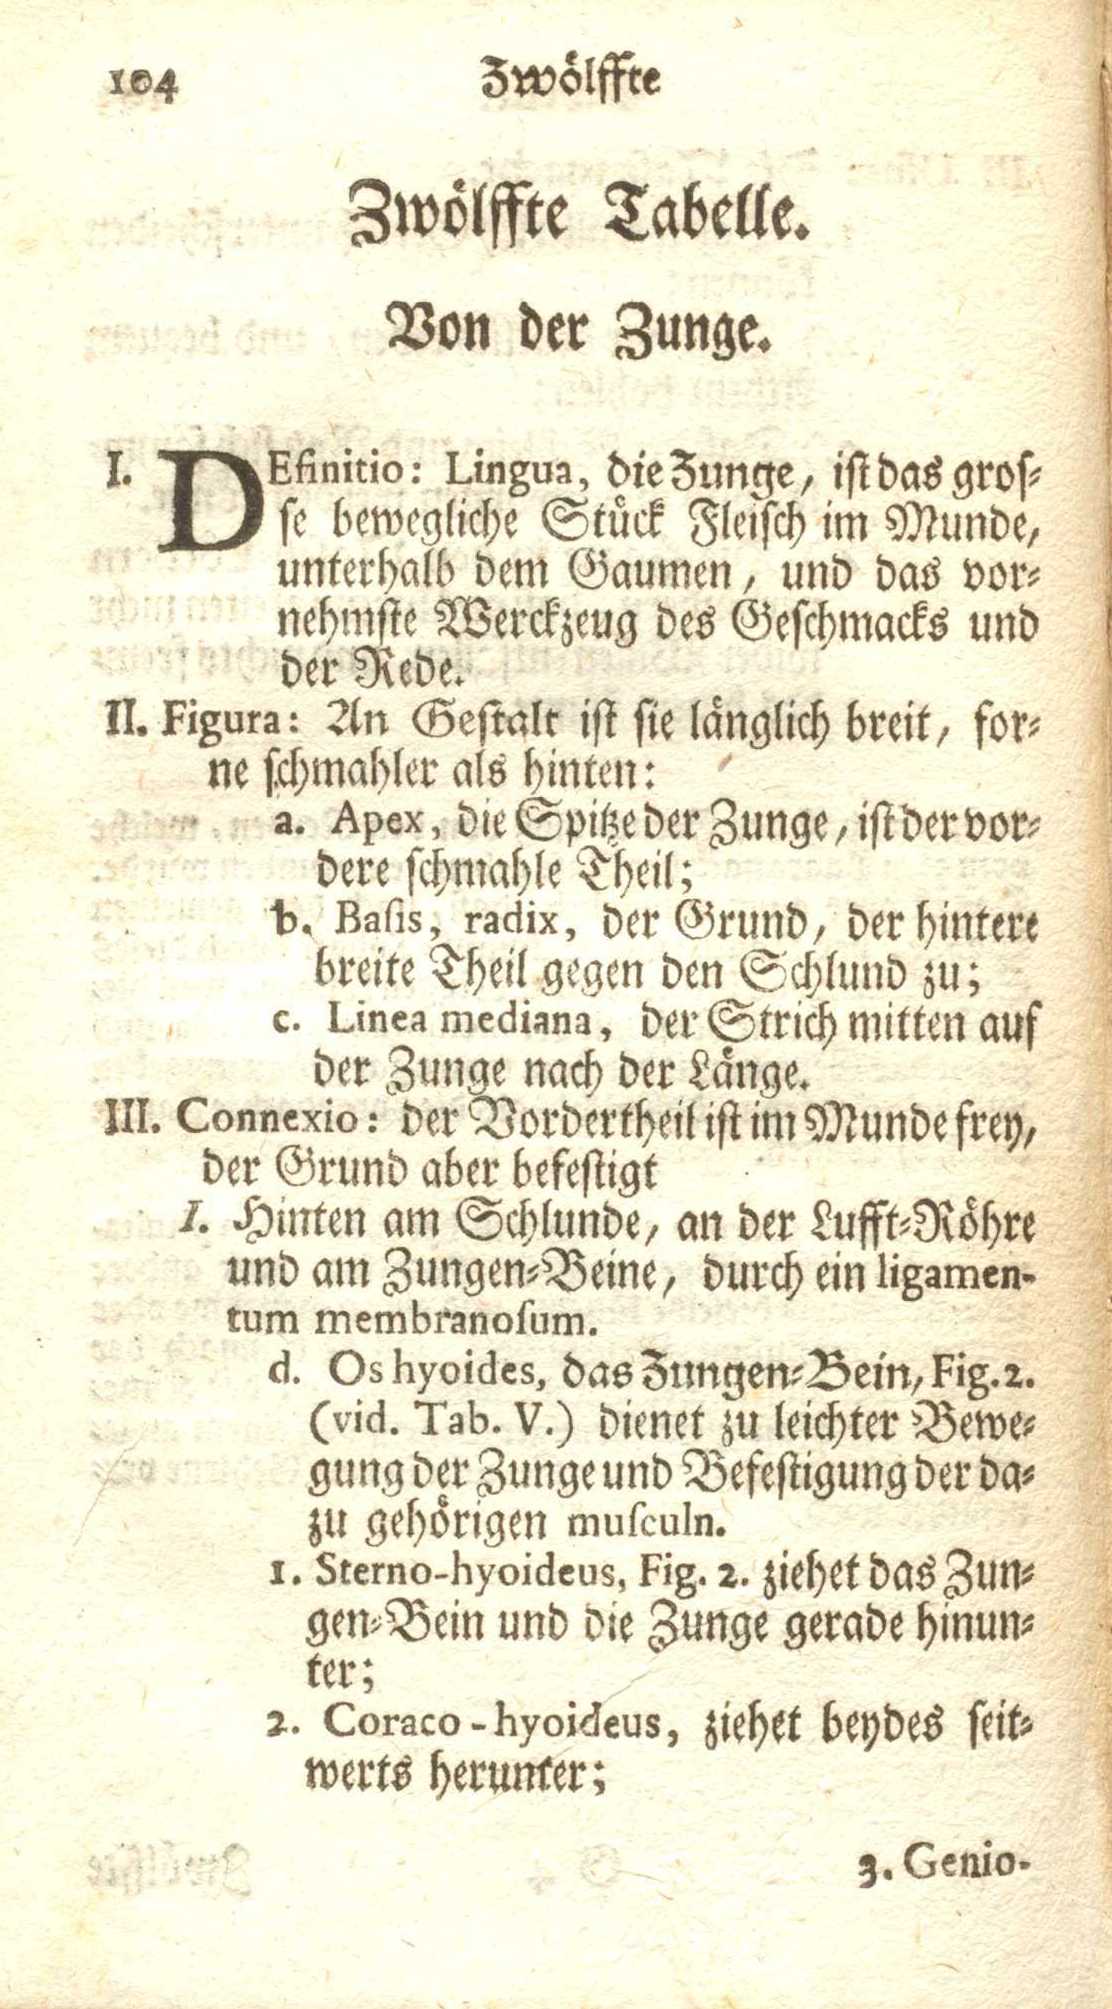 104 Zwölffte
Zwölffte Tabelle.
Von der Zunge.
I. DEfinitio: Lingua, die Zunge, ist das gros-
se bewegliche Stück Fleisch im Munde,
unterhalb dem Gaumen, und das vor-
nehmste Werckzeug des Geschmacks und
der Rede.
II. Figura: An Gestalt ist sie länglich breit, for-
ne schmahler als hinten:
a. Apex, die Spitze der Zunge, ist der vor-
dere schmahle Theil;
b. Basis, radix, der Grund, der hintere
breite Theil gegen den Schlund zu;
c. Linea mediana, der Strich mitten auf
der Zunge nach der Länge.
III. Connexio: der Vordertheil ist im Munde frey,
der Grund aber befestigt
1. Hinten am Schlunde, an der Lufft-Röhre
und am Zungen-Beine, durch ein ligamen-
tum membranosum.
d. Os hyoides, das Zungen-Bein, Fig. 2.
(vid. Tab. V.) dienet zu leichter Bewe-
gung der Zunge und Befestigung der da-
zu gehörigen musculn.
1. Sterno-hyoideus, Fig. 2. ziehet das Zun-
gen-Bein und die Zunge gerade hinun-
ter;
2. Coraco-hyoideus, ziehet beydes seit-
werts herunter;
3. Genio-